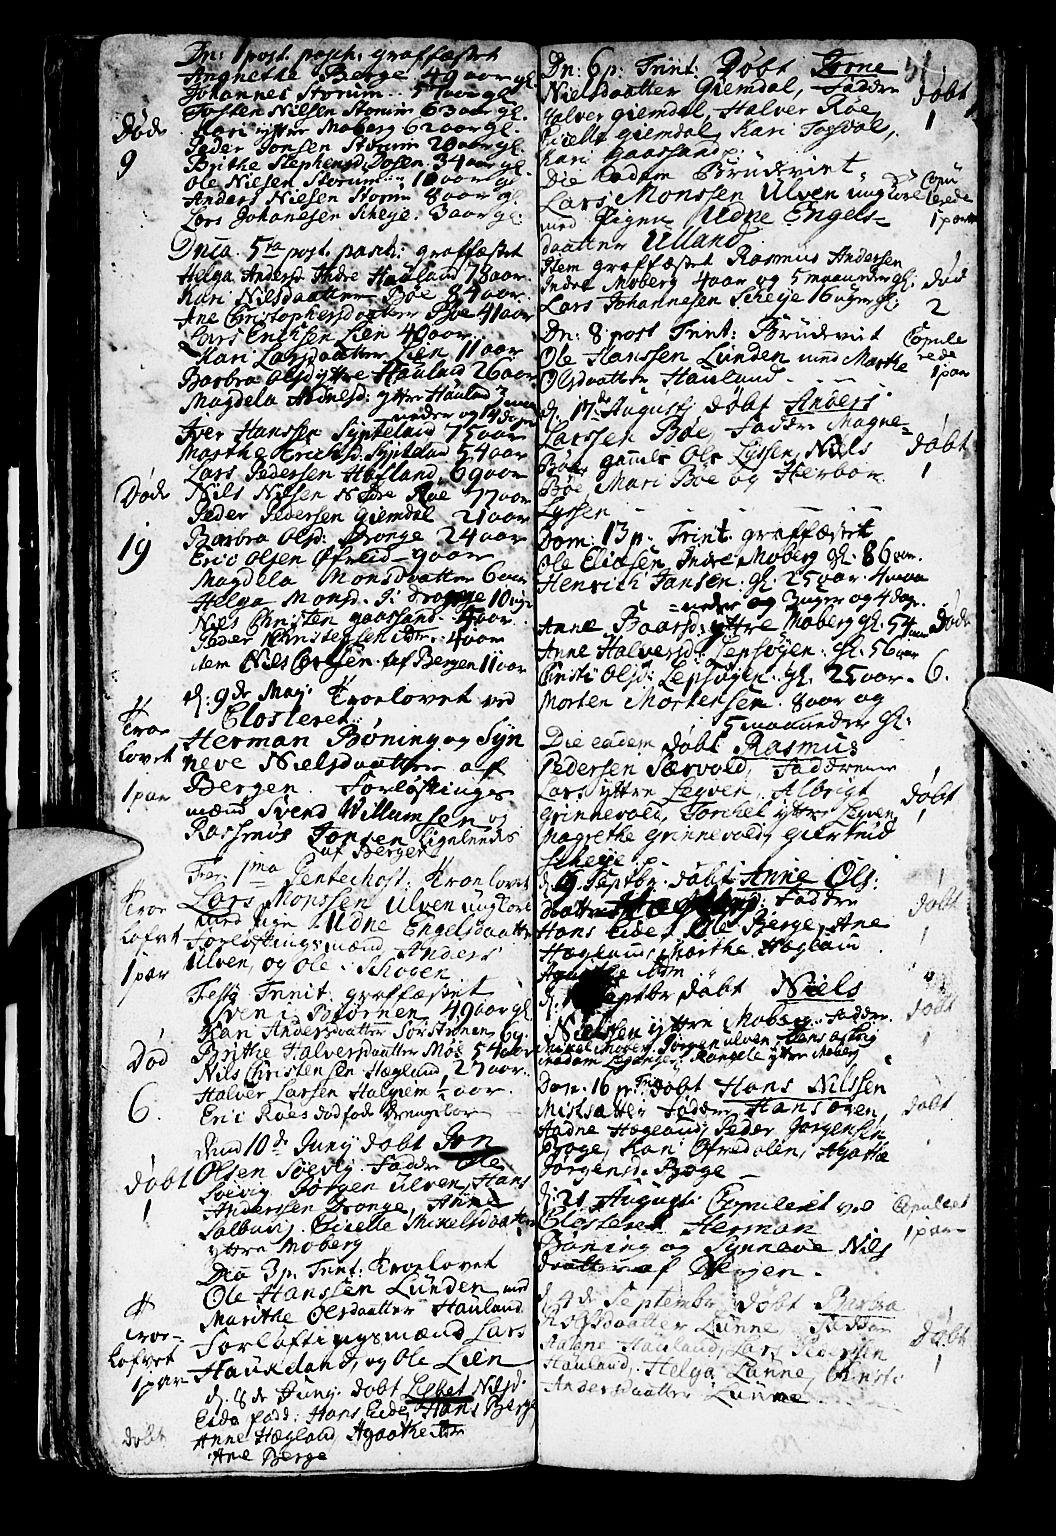 Dn: 1 post. pasch: graffæstet
Angnethe Berge. 49 aar gl.
Johannes Storum. 57 aar gl.
Tosten Nilsen Storum 63 aar gl.
Kari yttre Moberg 62 aar gl.
Peder Jonsen Storum 28 aar gl.
Brithe Stephensd: Dosen. 34 aar gl.
Ole Nilsen Storum 10 aar gl.
Anders Nielsen Storum 8 aar gl.
Lars Johannesen Scheye: 3 aar gl:
Døde
9
Dnca. 5ta post. pasch: graffæstet
Helga Andersd Indre Hauland 78 aar.
Kari Nilsdaatter Bøe 84 aar.
Ane Christophersdaatter Bøe 41 aar
Lars Erichsen Lien 40 aar.
Kari Larsdaatter Lien 11 aar
Barbra Olsd yttre Hauland 26 aar
Magdela Andnesd: yttre Hauland 7 maa
neder og 14 dage
Iver Hanssen Sypteland 75 aar
Marthe Erichsd: Syptelad 54 aar
Lars Pedersen Hofland, 69 aar
Nils Nilsen Nedre Røe 77 aar
Peder Pedersen Giemdal 21 aar
Barbra Olsd: Dronge 24 aar
Eric Olsen Øfreid 9 aar
Magdela Monsdaatter 6 aar
Helga Monsd.
Niels Christen gaassand. 4 aar.
Peder Christensen idem. 4 aar
idem Niels Larsen af Bergen 11 aar
Døde
19
d. 9de Maj: Troelovet ved
Closteret:
Herman Bøning og Syn
neve Nielsdaatter af
Bergen. Forløftings
mænd Svend Willumsen og
Rasmus Jonsen ligeledes
af Bergen
Troe
lovet
1 par
Fer: 1ma Pentechost: Troelovet
Lars Monssen Ulven ungkarl
med pige Udne Engelsdaatter
Forløftingsmænd Anders
Ulven, og Ole Schogen
Troe
lofvet
1 par
Festo Trinit: graffæstet
Sven i Biørnen 49 aar gl.
Kari Andersdaatter Sørstrønen 69.
Brithe Halversdaatter Moe 54 aar
Nils Christensen Hægland 27 aar.
Halver Larsen Halhiem ½ aar.
Eric Røes dødfød Drengebarn
Død
6.
Dend 10de Junij døbt Jon
Olsen Søevig. Faddre Ole
Søevig Jørgen Ulven, Hans
Anderssen Dronge, Anne
Salbuen, Giselle Mikelsdaatter
yttre Moberg
Døbt
1
Dca 3 p: Trinit: Troelovet
Ole Hanssen Lunden med
Marithe Olsdaatter Hauland
Forløftingsmænd Lars
Haukeland, og Ole Lien
Troe-
lofvet
1 par
d. 8de Junij døbt Lisbet Nilsd.
Eide fadd: Hans Eide, Hans Berge
Anne Hægland Agaathe ibm
Ane Berge
døbt
51.
Dn: 6 p: Trinit: Døbt Torne
Nielsdaatter Giemdal, Faddre
Halver Giemdal, Halver Røe,
Giselle Giemdal, Kari Tøsdal,
Kari Gaassand.
døbt
1
Die eadem Brudeviet
Lars Monssen Ulven ungkarl
med Pigen Udne Engels-
daatter Ulland
Copu
lerede
1 par
Item graffæstet Rasmus Andersen
Indre Moberg 4 aar og 5 maaneder gl.
Lars Johannesen Scheye 16 uger gl:
død
2
Dn: 8 post Trinit: Brudeviet
Ole Hanssen Lunden med Marthe
Olsdaatter Hauland
Copule
rede
1 par
d. 17de Augustj døbt Anders
Larssen Bøe, Faddre Magne
Bøe gamle Ole Lyssen, Niels
Bøe, Mari Bøe og Herbor
Lyssen
døbt
1
Dom: 13 p: Trinit. graffæstet
Ole Eliasen Indre Moberg gl: 86 aar.
Henrich Jansen gl. 25 aar 4 maa
neder og 3 uger og 4 dage.
Anne Baarsd: yttre Moberg gl. 54
Anne Halversd: Lepsøyen: gl: 56 aar
Christi Olsd: Lepsøyen. gl. 25 aar.
Morten Mortensen. 8 aar og
5 maaneder gl:
døde
6.
Die eadem døbt Rasmus
Pedersen Særvold, Fadderne
Lars yttre Legven, Albrigt
Grinnevold, Torchel yttre Legven
Magrethe Grinnevold, Giertrud
Scheye
døbt
1
d. 9 Septbr. døbt Anne Ols:
daatter Faddre
Hans Eide, Ole Berge, Ane
Hægland, Marthe Hægland
Agathe ibm
døbt
1
d. Septbr døbt Niels
Nielssen yttre Moberg. Faddre
Mikel Moberg, Jørgen Ulven
Madam Legangen, Rangele yttre Moberg
døbt
1
Dom: 16 p: Trin: døbt Hans Nilssen
Faddre, Hans Øren,
Aadne Hægland, Peder Jørgensen
Røge, Kari Øfredalen, Agathe
Jørgensd: Bøge
døbt
d: 21 Augusti Copuleret ved
Closteret Herman
Bøning og Synneve Nils
daatter af Bergen.
Copuleret
1 par
d. 4de Septembr døbt Barbra
Rolfsdaatter Lunne, Faddre
Aadne Hauland, Lars Pedersen
Hauland, Helga Lunne, Christi
Andersdaatter Lunne
Døbt
1